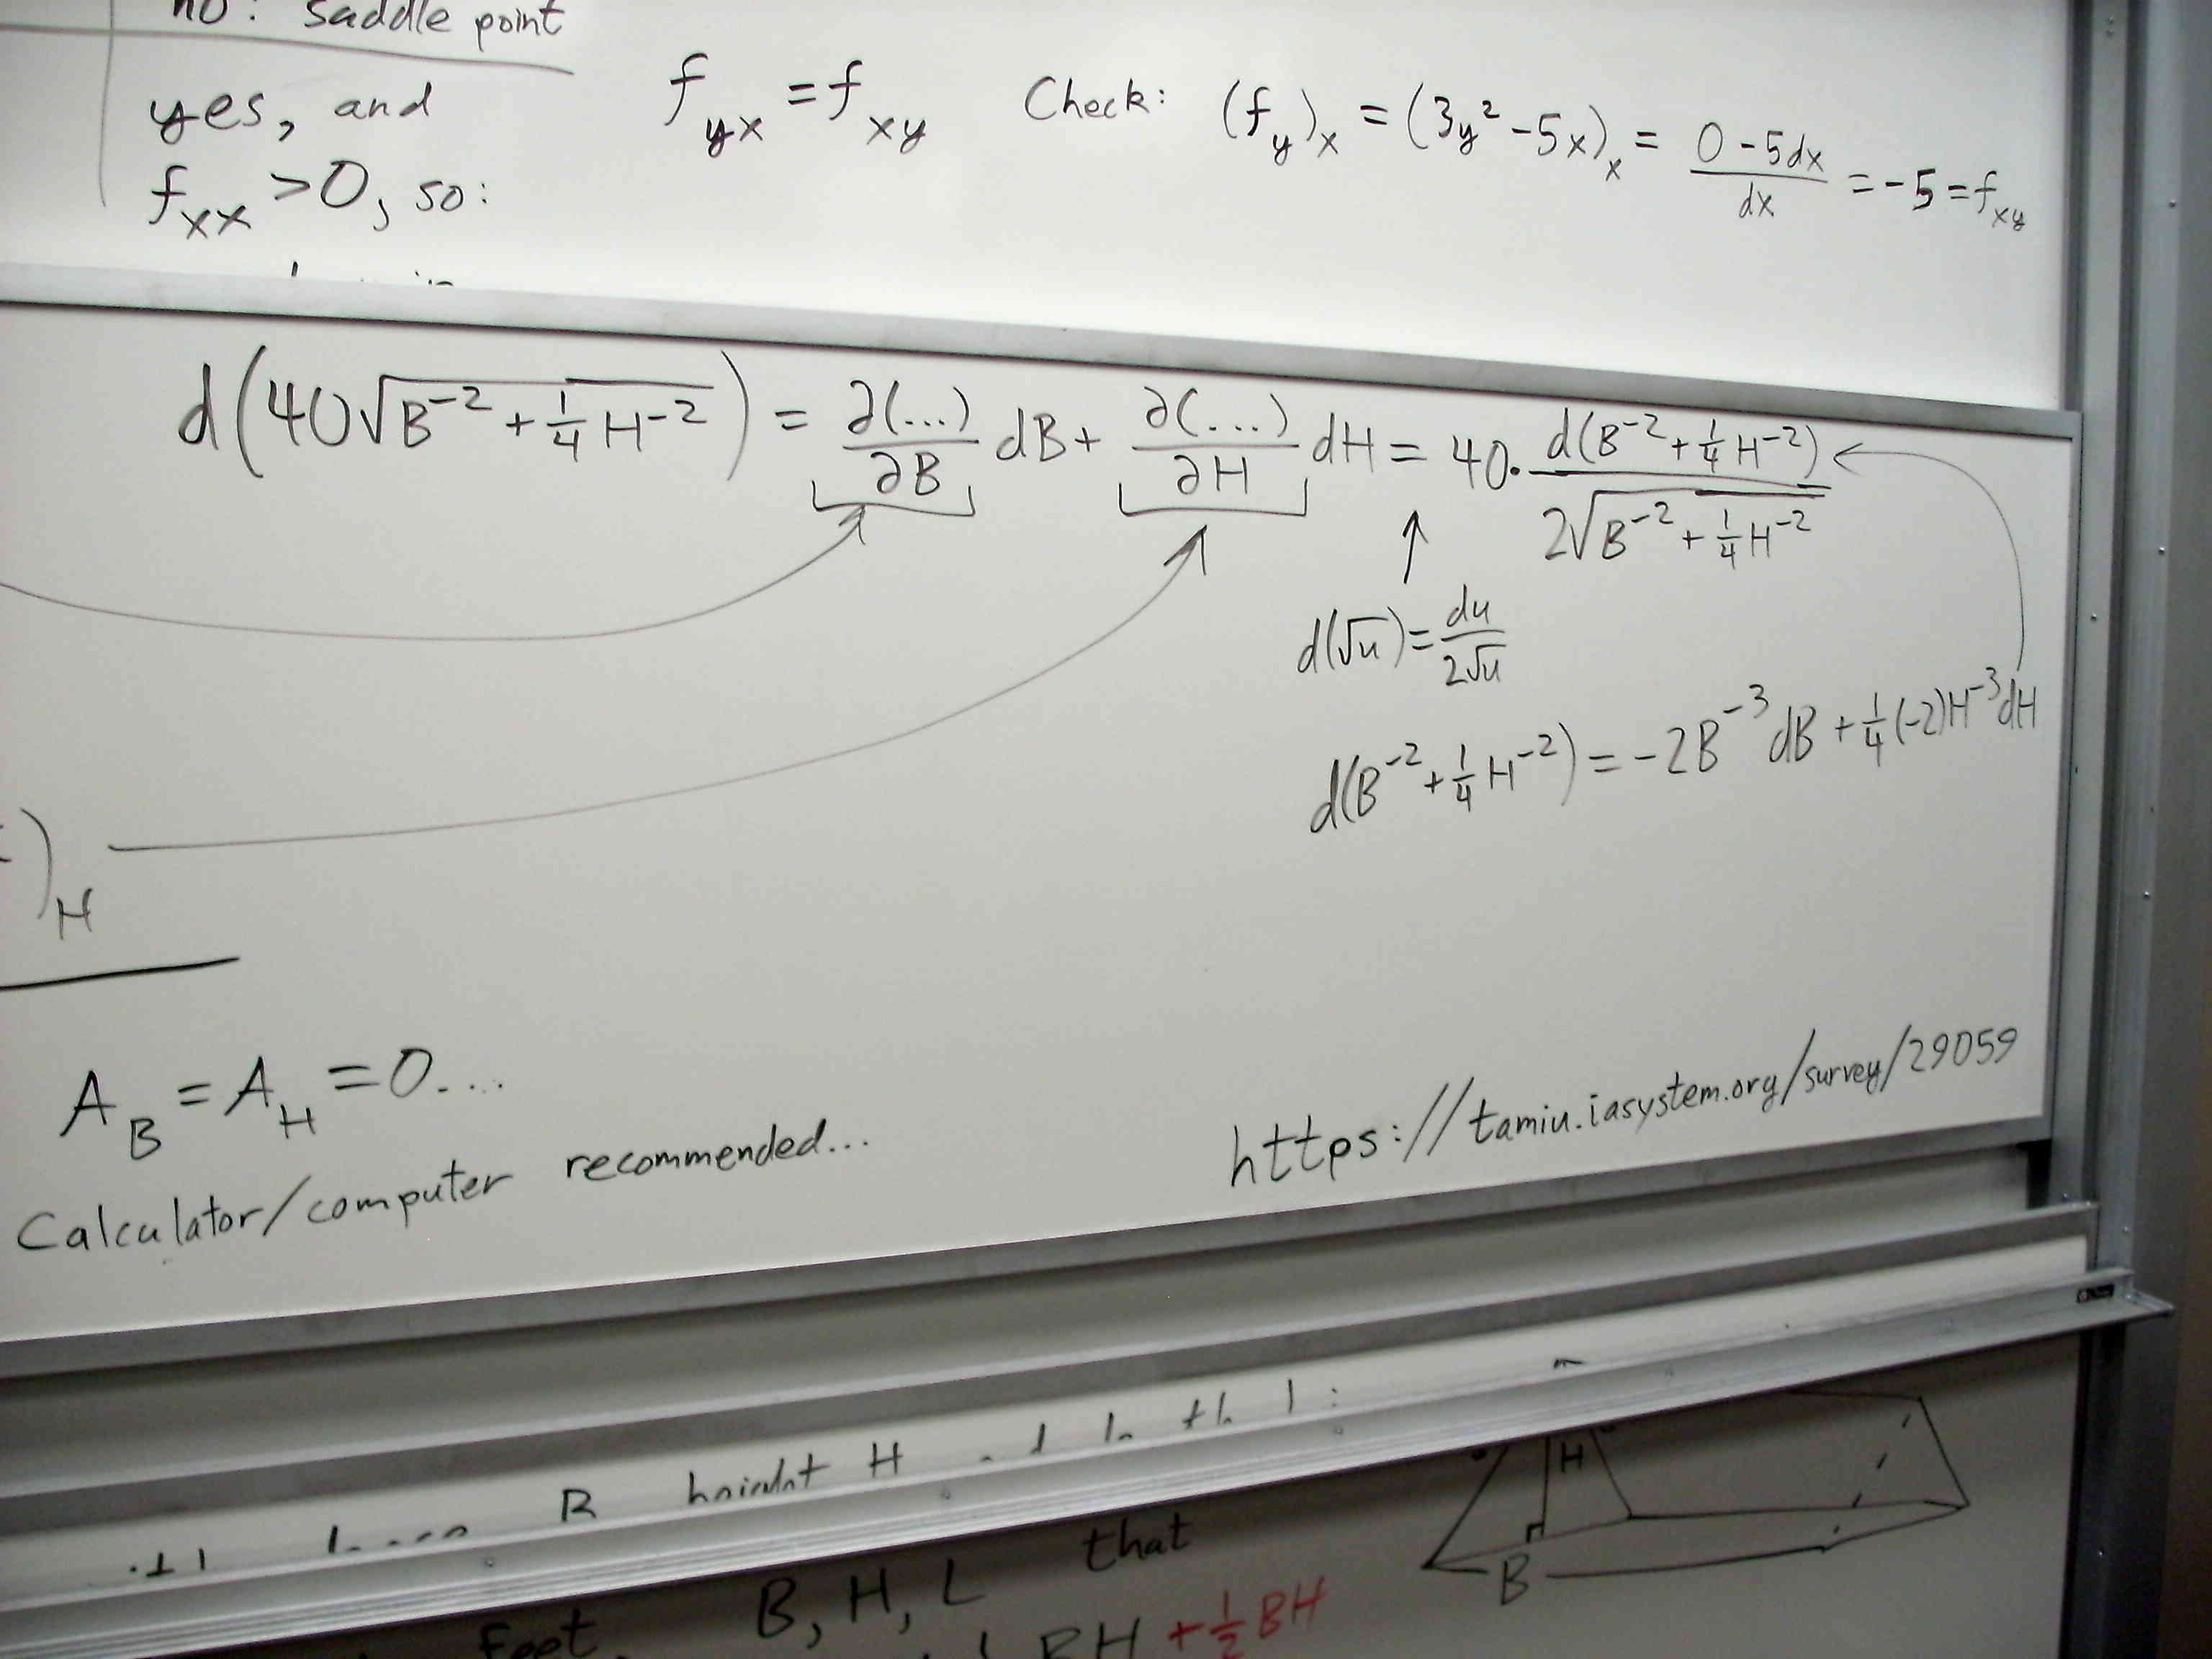 no: saddle point
yes, and
f_xx > 0, so:
f_yx = f_xy
Check: (f_y)_x = (3y² - 5x)_x = (0 - 5dx)/dx = -5 = f_xy
d(40√(B⁻² + ¼ H⁻²)) = ∂(...)/∂B dB + ∂(...)/∂H dH = 40 · d(B⁻² + ¼ H⁻²)/(2√(B⁻² + ¼ H⁻²))
d(√u) = du/(2√u)
d(B⁻² + ¼ H⁻²) = -2B⁻³ dB + ¼(-2)H⁻³ dH
)_H
A_B = A_H = 0...
Calculator/computer recommended...
https://tamiu.iasystem.org/survey/29059
B height H
H
B
B, H, L that
feet
BH + ½ BH